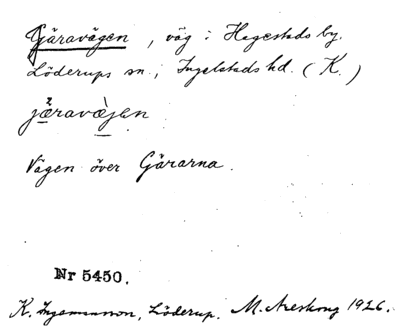 Gäravägen, väg i Hagestads by.
Löderups sn., Ingelstads hd. (K.)
järavàjen
Vägen över Gärarna.
Nr 5450.
K. Ingemansson, Löderup. M. Areskog 1926.